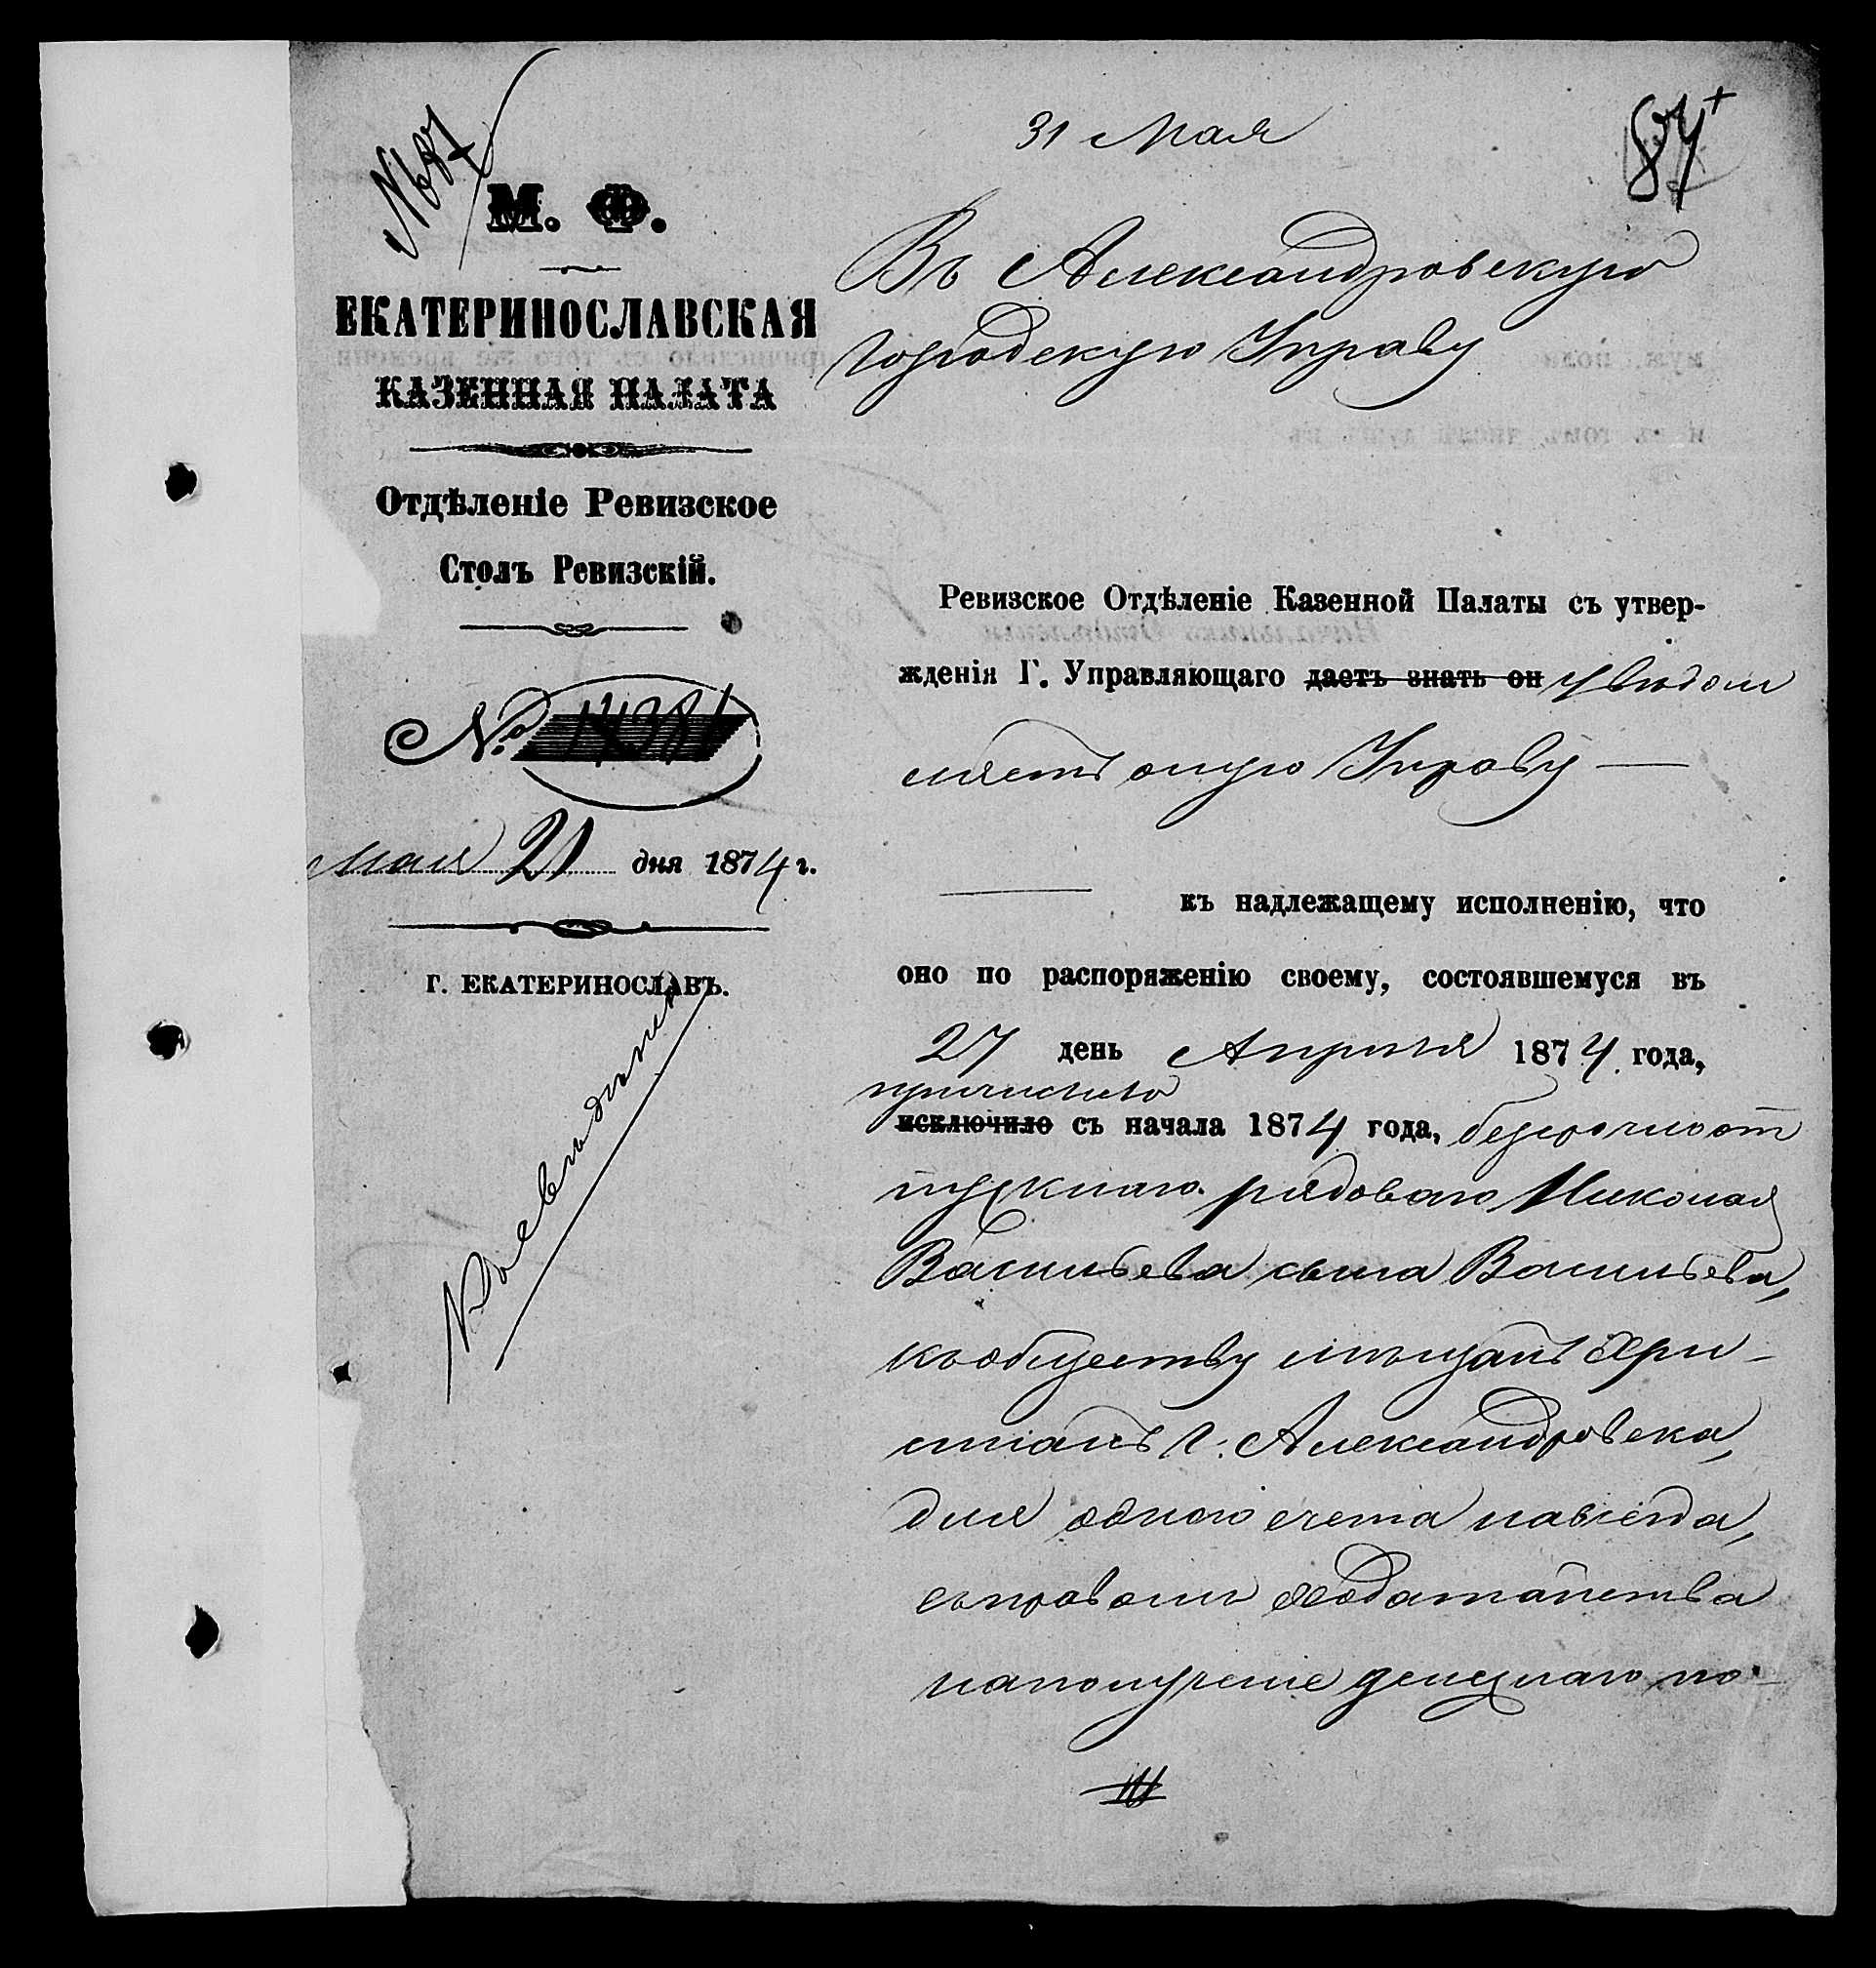 № 687
М. Ф.
ЕКАТЕРИНОСЛАВСКАЯ
КАЗЕННАЯ ПАЛАТА
Отдѣленіе Ревизское
Столъ Ревизскій.
№ 14381
мая 21 дня 1874 г.
г. ЕКАТЕРИНОСЛАВЪ.
31 Мая
87
Въ Александровскую
Городскую Управу
Ревизское Отдѣленіе Казенной Палаты съ утвер-
жденія Г. Управляющаго даетъ знать он увѣдом
ляетъ оную Управу —
къ надлежащему исполненію, что
оно по распоряженію своему, состоявшемуся въ
27 день Апрѣля 1874 года,
причислило
исключило съ начала 1874 года, безсрочноот
пускнаго рядоваго Николая
Васильева сына Васильева,
къ обществу мѣщанъ Хри-
стіанъ г. Александровска,
для одного счета навсегда,
съ правомъ ходатайства
на полученіе денежнаго по-